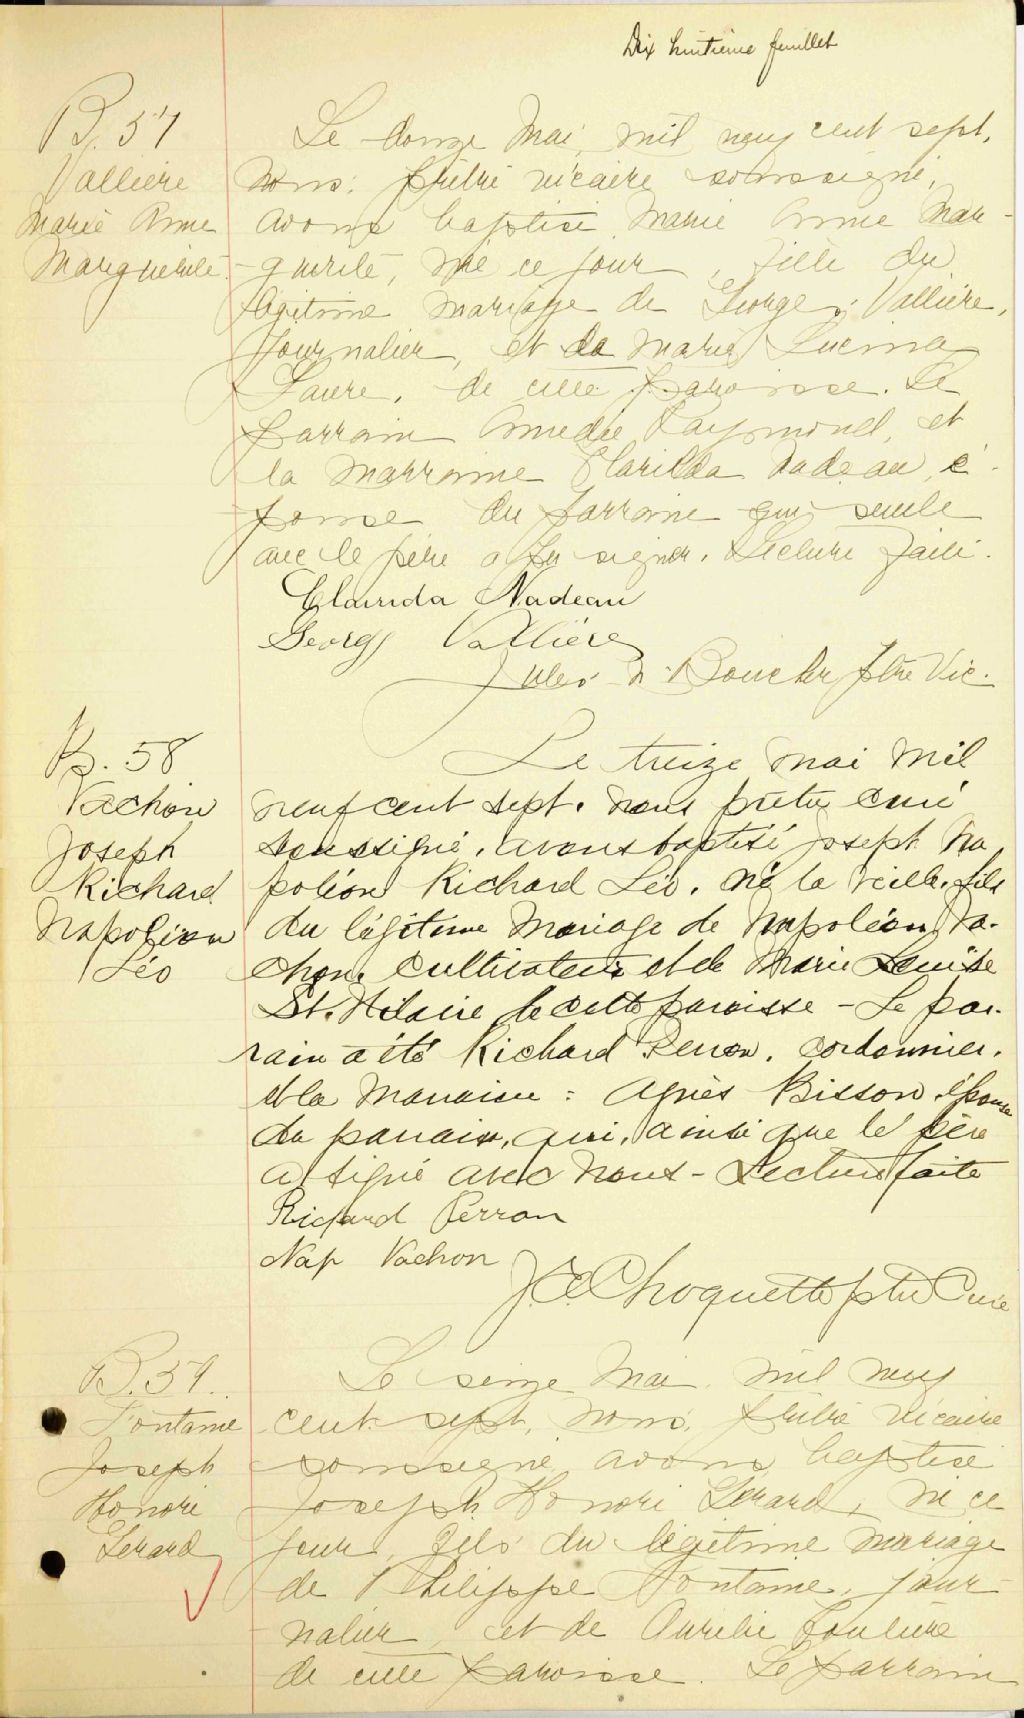 Dix huitième feuillet
B. 57
Vallière
Marie Anne
Marguerite
Le douze Mai, mil neuf cent sept,
nous, prêtre vicaire soussigné,
avons baptisé Marie Anne Mar-
guerite, née ce jour, fille du
légitime mariage de George Vallière,
journalier, et de Marie Lucina
Laure, de cette paroisse. Le
parrain Amédée Raymond, et
la marraine Clarilda Nadeau, é-
pouse du parrain qui seule
avec le père a su signer. Lecture faite.
Clarinda Nadeau
George Vallière
Jules A. Boucher ptre Vic.
B. 58
Vachon
Joseph
Richard
Napoléon
Léo
Le treize mai mil
neuf cent sept, nous prêtre curé
soussigné, avons baptisé Joseph Na
poléon Richard Léo, né la veille, fils
du légitime mariage de Napoléon Va-
chon, cultivateur et de Marie Louise
St. Hilaire de cette paroisse - Le par-
rain a été Richard Perron, cordonnier,
et la marraine : Agnès Bisson, épouse
du parrain, qui, ainsi que le père
a signé avec nous - Lecture faite
Richard Perron
Nap Vachon
J. C. Choquette ptre Curé
B. 59.
Fontaine
Joseph
Honoré
Gérard
Le seize Mai, mil neuf
cent sept, nous, prêtre vicaire
soussigné, avons baptisé
Joseph Honoré Gérard, né ce
jour, fils du légitime mariage
de Philippe Fontaine, jour-
nalier, et de Aurélie Couture
de cette paroisse. Le parrain